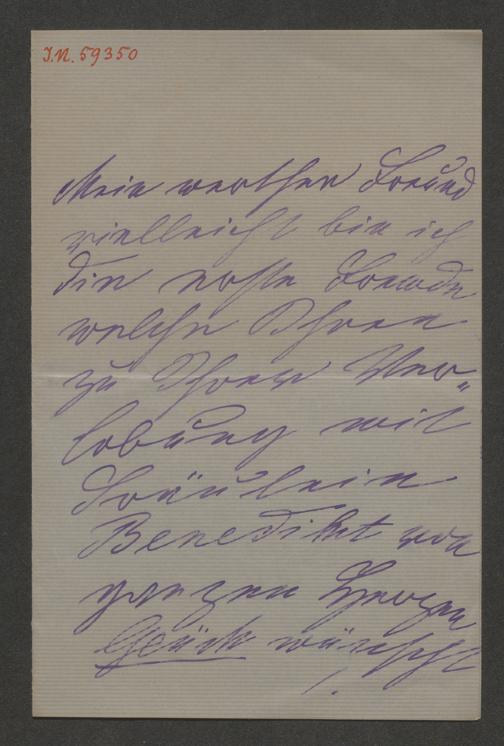 J.N. 59350
Mein werther Freund
vielleicht bin ich
die erste Fremde
welche Ihnen
zu Ihrer Ver„
lobung mit
Fräulein
Benedikt von
ganzen Herzen
Glück wünscht
!